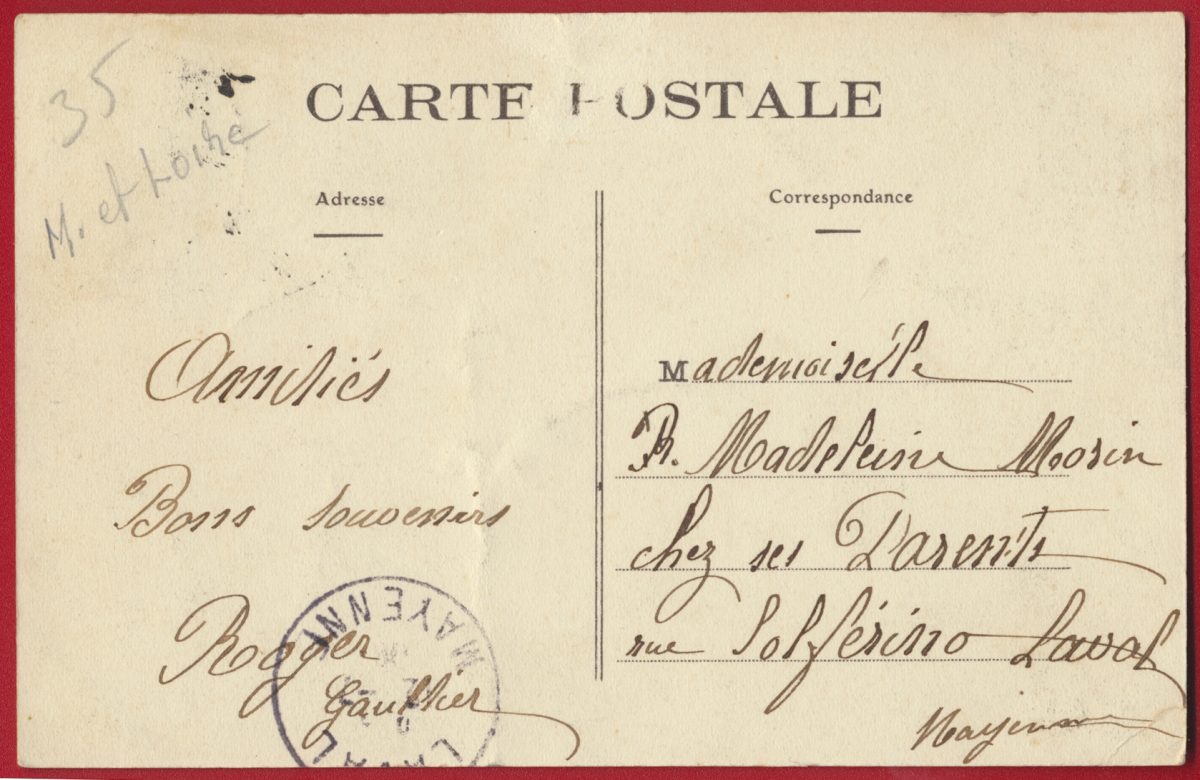 35
M. et Loire
CARTE POSTALE
Adresse
Correspondance
Amitiés
Bons souvenirs
Rogger
Gaulthier
Mademoiselle
Madeleine Morin
chez ses Parents
rue Solférino Laval
Mayenne
LAVAL
MAYENNE